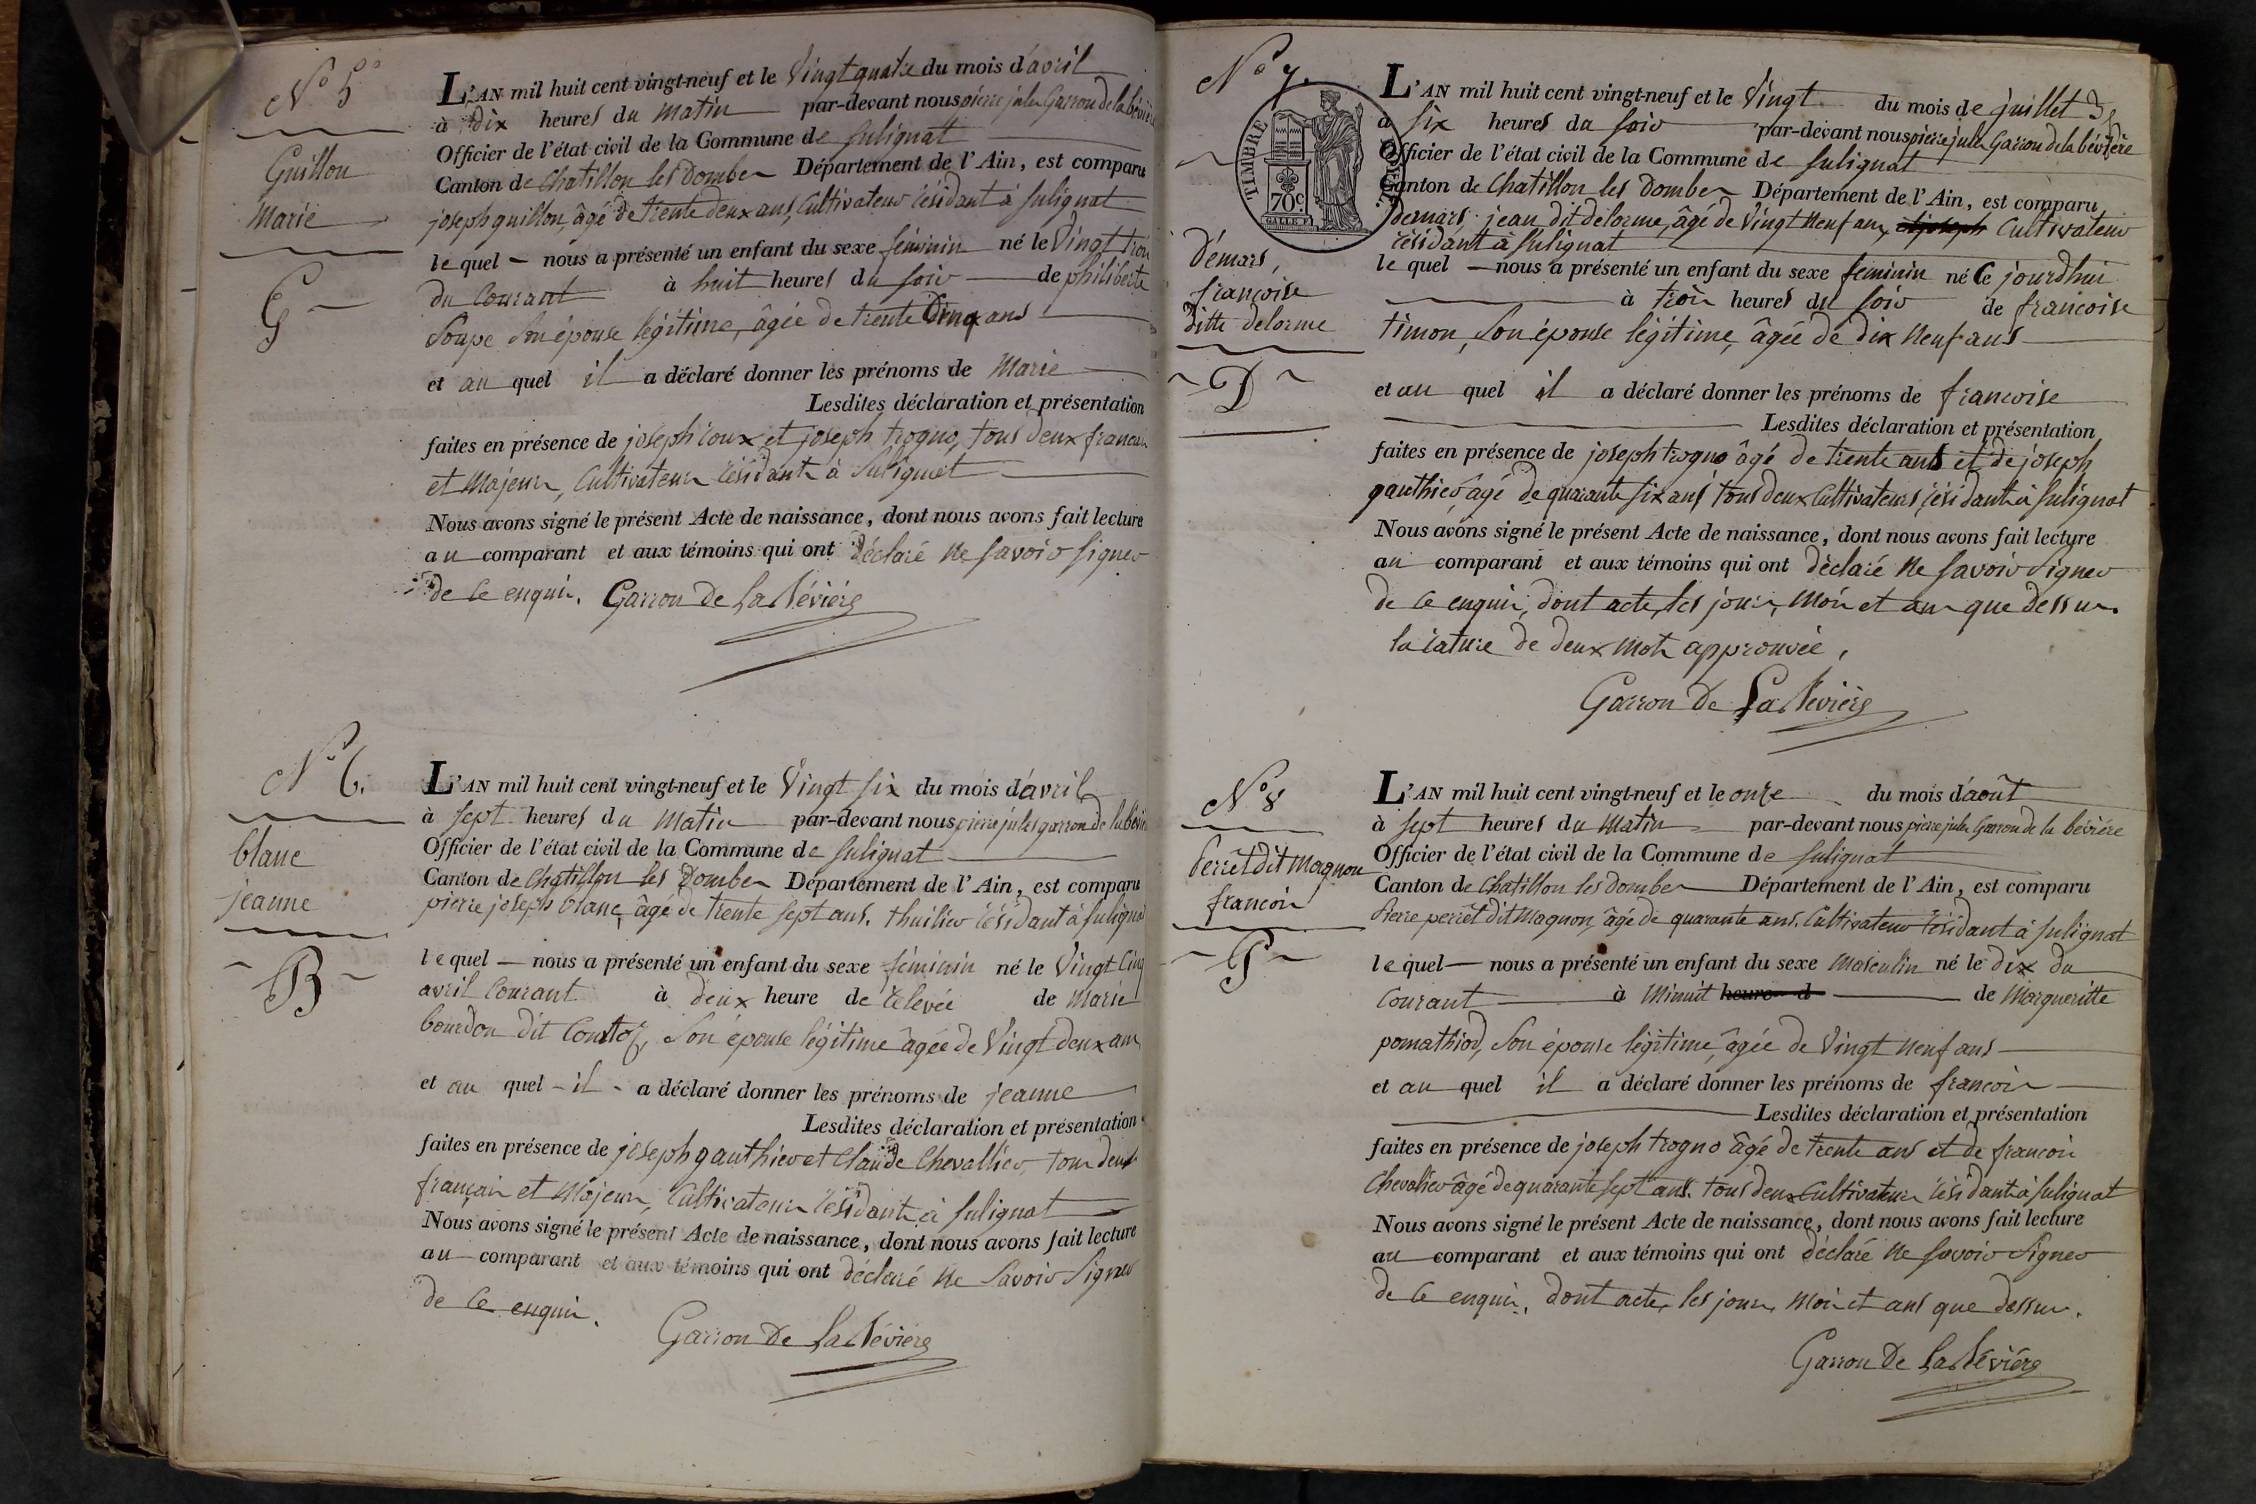 N° 5
Guillon
Marie
G
L'AN mil huit cent vingt-neuf et le Vingt quatre du mois d'avril
à dix heures du matin par-devant nous pierre jules Garron de la bévière
Officier de l'état civil de la Commune de Sulignat
Canton de Chatillon les Dombes Département de l'Ain, est comparu
joseph guillon, âgé de trente deux ans, Cultivateur résidant à Sulignat
lequel nous a présenté un enfant du sexe féminin né le Vingt trois
du Courant à huit heures du soir de philiberte
Soupe Son épouse légitime, âgée de trente Cinq ans
et au quel il a déclaré donner les prénoms de Marie
Lesdites déclaration et présentation
faites en présence de joseph roux et joseph trogno, tous deux francais
et Majeurs, Cultivateurs résidants à Sulignat
Nous avons signé le présent Acte de naissance, dont nous avons fait lecture
au comparant et aux témoins qui ont déclaré ne savoir signer
de ce enquis. Garron De La Bévière
N° 6.
blanc
jeanne
B
L'AN mil huit cent vingt-neuf et le Vingt six du mois d'avril
à sept heures du Matin par-devant nous pierre jules garron de la bévière
Officier de l'état civil de la Commune de Sulignat
Canton de Chatillon les Dombes Département de l'Ain, est comparu
pierre joseph blanc, âgé de trente sept ans. thuilier résidant à Sulignat
lequel nous a présenté un enfant du sexe féminin né le Vingt Cinq
avril Courant à deux heure de relevée de Marie
bourdon dit Comtoz, Son épouse légitime âgée de Vingt deux ans
et au quel il a déclaré donner les prénoms de jeanne
Lesdites déclaration et présentation
faites en présence de joseph gauthier et Claude Chevallier, tous deux
français et Majeurs, Cultivateurs résidants à Sulignat
Nous avons signé le présent Acte de naissance, dont nous avons fait lecture
au comparant et aux témoins qui ont déclaré ne Savoir Signer
de ce enquis.
Garron De La Bévière
N° 7.
TIMBRE ROYAL
70c
GALLE F.
Démars,
francoise
ditte delorme
D
L'AN mil huit cent vingt-neuf et le Vingt du mois de juillet
à six heures du soir par-devant nous pierre jules Garron de la bévière
Officier de l'état civil de la Commune de Sulignat
Canton de Chatillon les Dombes Département de l'Ain, est comparu
demars jean dit delorme, âgé de Vingt Neuf ans, et joseph Cultivateur
résidant à Sulignat
lequel nous a présenté un enfant du sexe feminin né Ce jourdhui
à trois heures du soir de francoise
timon, Son épouse légitime, âgée de dix Neuf ans
et au quel il a déclaré donner les prénoms de francoise
Lesdites déclaration et présentation
faites en présence de joseph trogno âgé de trente ans et de joseph
gauthier, âgé de quarante six ans tous deux Cultivateurs, résidants à Sulignat
Nous avons signé le présent Acte de naissance, dont nous avons fait lecture
au comparant et aux témoins qui ont déclaré ne savoir Signer
de ce enquis, dont acte, les jour, Mois et an que dessus.
la rature de deux Mots approuvée,
Garron De La Bévière
N° 8
Perrêt dit Magnon
francois
P
L'AN mil huit cent vingt-neuf et le onze du mois d'août
à sept heures du Matin par-devant nous pierre jules Garron de la bévière
Officier de l'état civil de la Commune de Sulignat
Canton de Chatillon les dombes Département de l'Ain, est comparu
Pierre perrêt dit Magnon, âgé de quarante ans. Cultivateur résidant à Sulignat
lequel nous a présenté un enfant du sexe Masculin né le dix du
Courant à Minuit heure d de Margueritte
pomathiod, Son épouse légitime, âgée de Vingt Neuf ans
et au quel il a déclaré donner les prénoms de francois
Lesdites déclaration et présentation
faites en présence de joseph trogno âgé de trente ans et de francois
Chevalier âgé de quarante sept ans. tous deux Cultivateurs résidants à Sulignat
Nous avons signé le présent Acte de naissance, dont nous avons fait lecture
au comparant et aux témoins qui ont déclaré ne savoir Signer
de ce enquis, dont acte, les jour, Mois et ans que dessus.
Garron De La Bévière